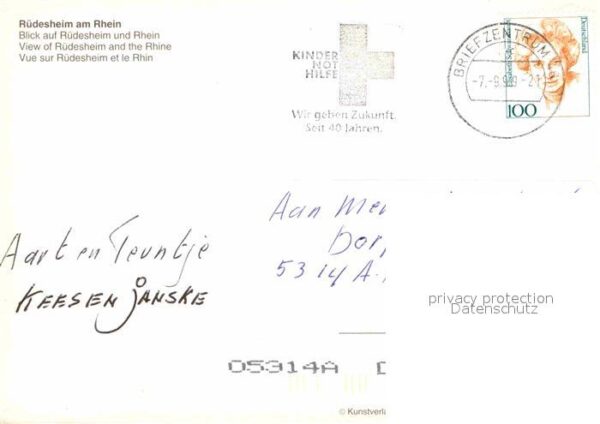 Rüdesheim am Rhein
Blick auf Rüdesheim und Rhein
View of Rüdesheim and the Rhine
Vue sur Rüdesheim et le Rhin
KINDER
NOT
HILFE
Wir geben Zukunft.
Seit 40 Jahren.
BRIEFZENTRUM
Deutschland
100
Aan
Aart en Teuntje
KEES EN JANSKE
5314 A
privacy protection
Datenschutz
05314A D
© Kunstverla